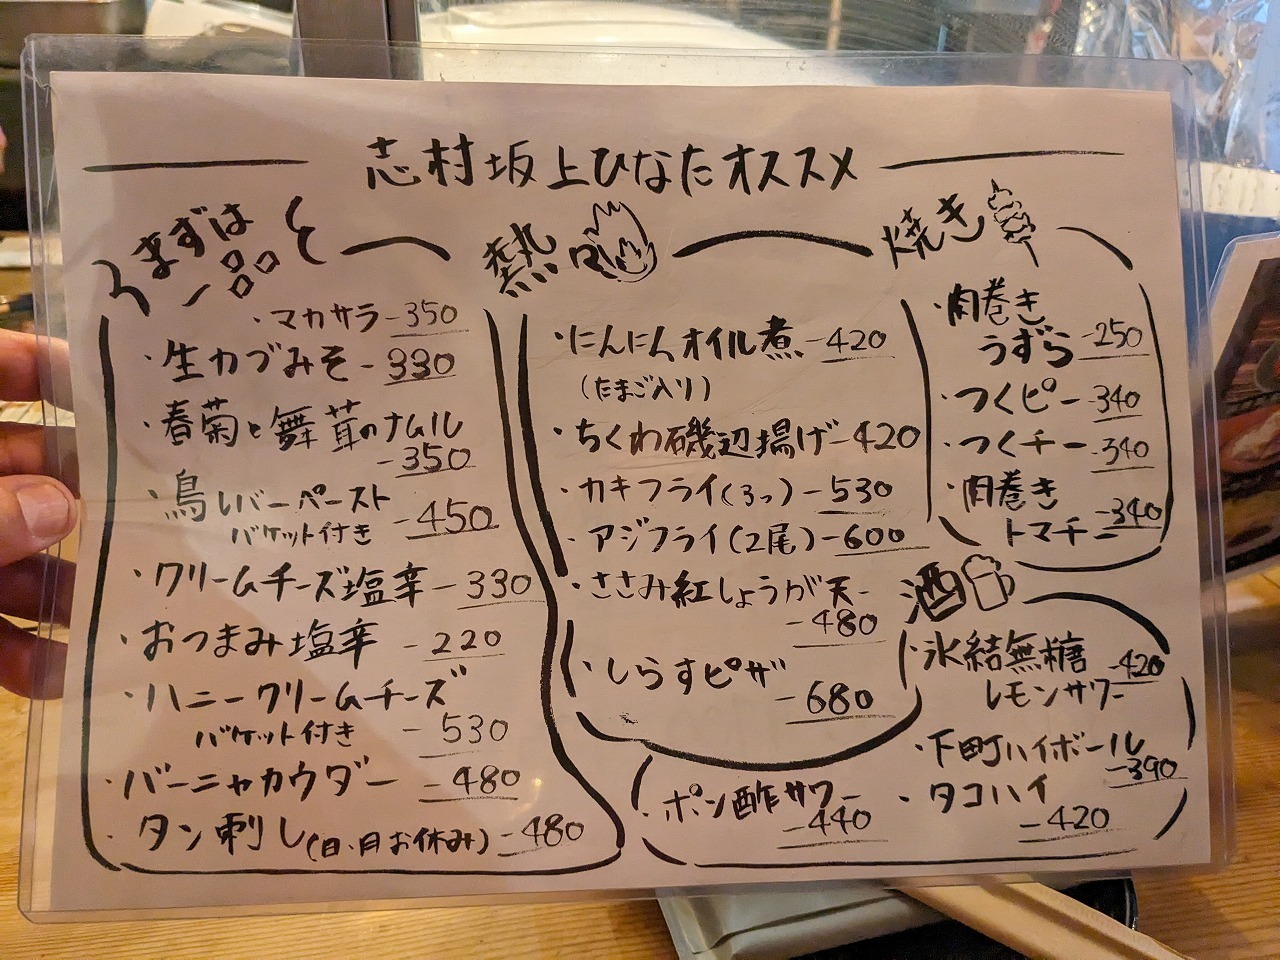 志村坂上ひなたオススメ
まずは
一品
マカサラ-350
・生カブみそ-330
・春菊と舞茸のナムル
-350
・鳥レバーペースト
バケット付き -450
・クリームチーズ塩辛-330
・おつまみ塩辛 -220
・ハニークリームチーズ
バケット付き -530
・バーニャカウダー -480
・タン刺し(日、月お休み)-480
熱
・にんにんオイル煮-420
(たまご入り)
・ちくわ磯辺揚げ-420
・カキフライ(3つ)-530
・アジフライ(2尾)-600
・ささみ紅しょうが天-
-480
・しらすピザ
-680
焼き
・肉巻き
うずら-250
・つくピー-340
・つくチー-340
・肉巻き
トマチー-340
酒
・氷結無糖
レモンサワー -420
・下町ハイボール
-390
・タコハイ
-420
・ポン酢サワー
-440